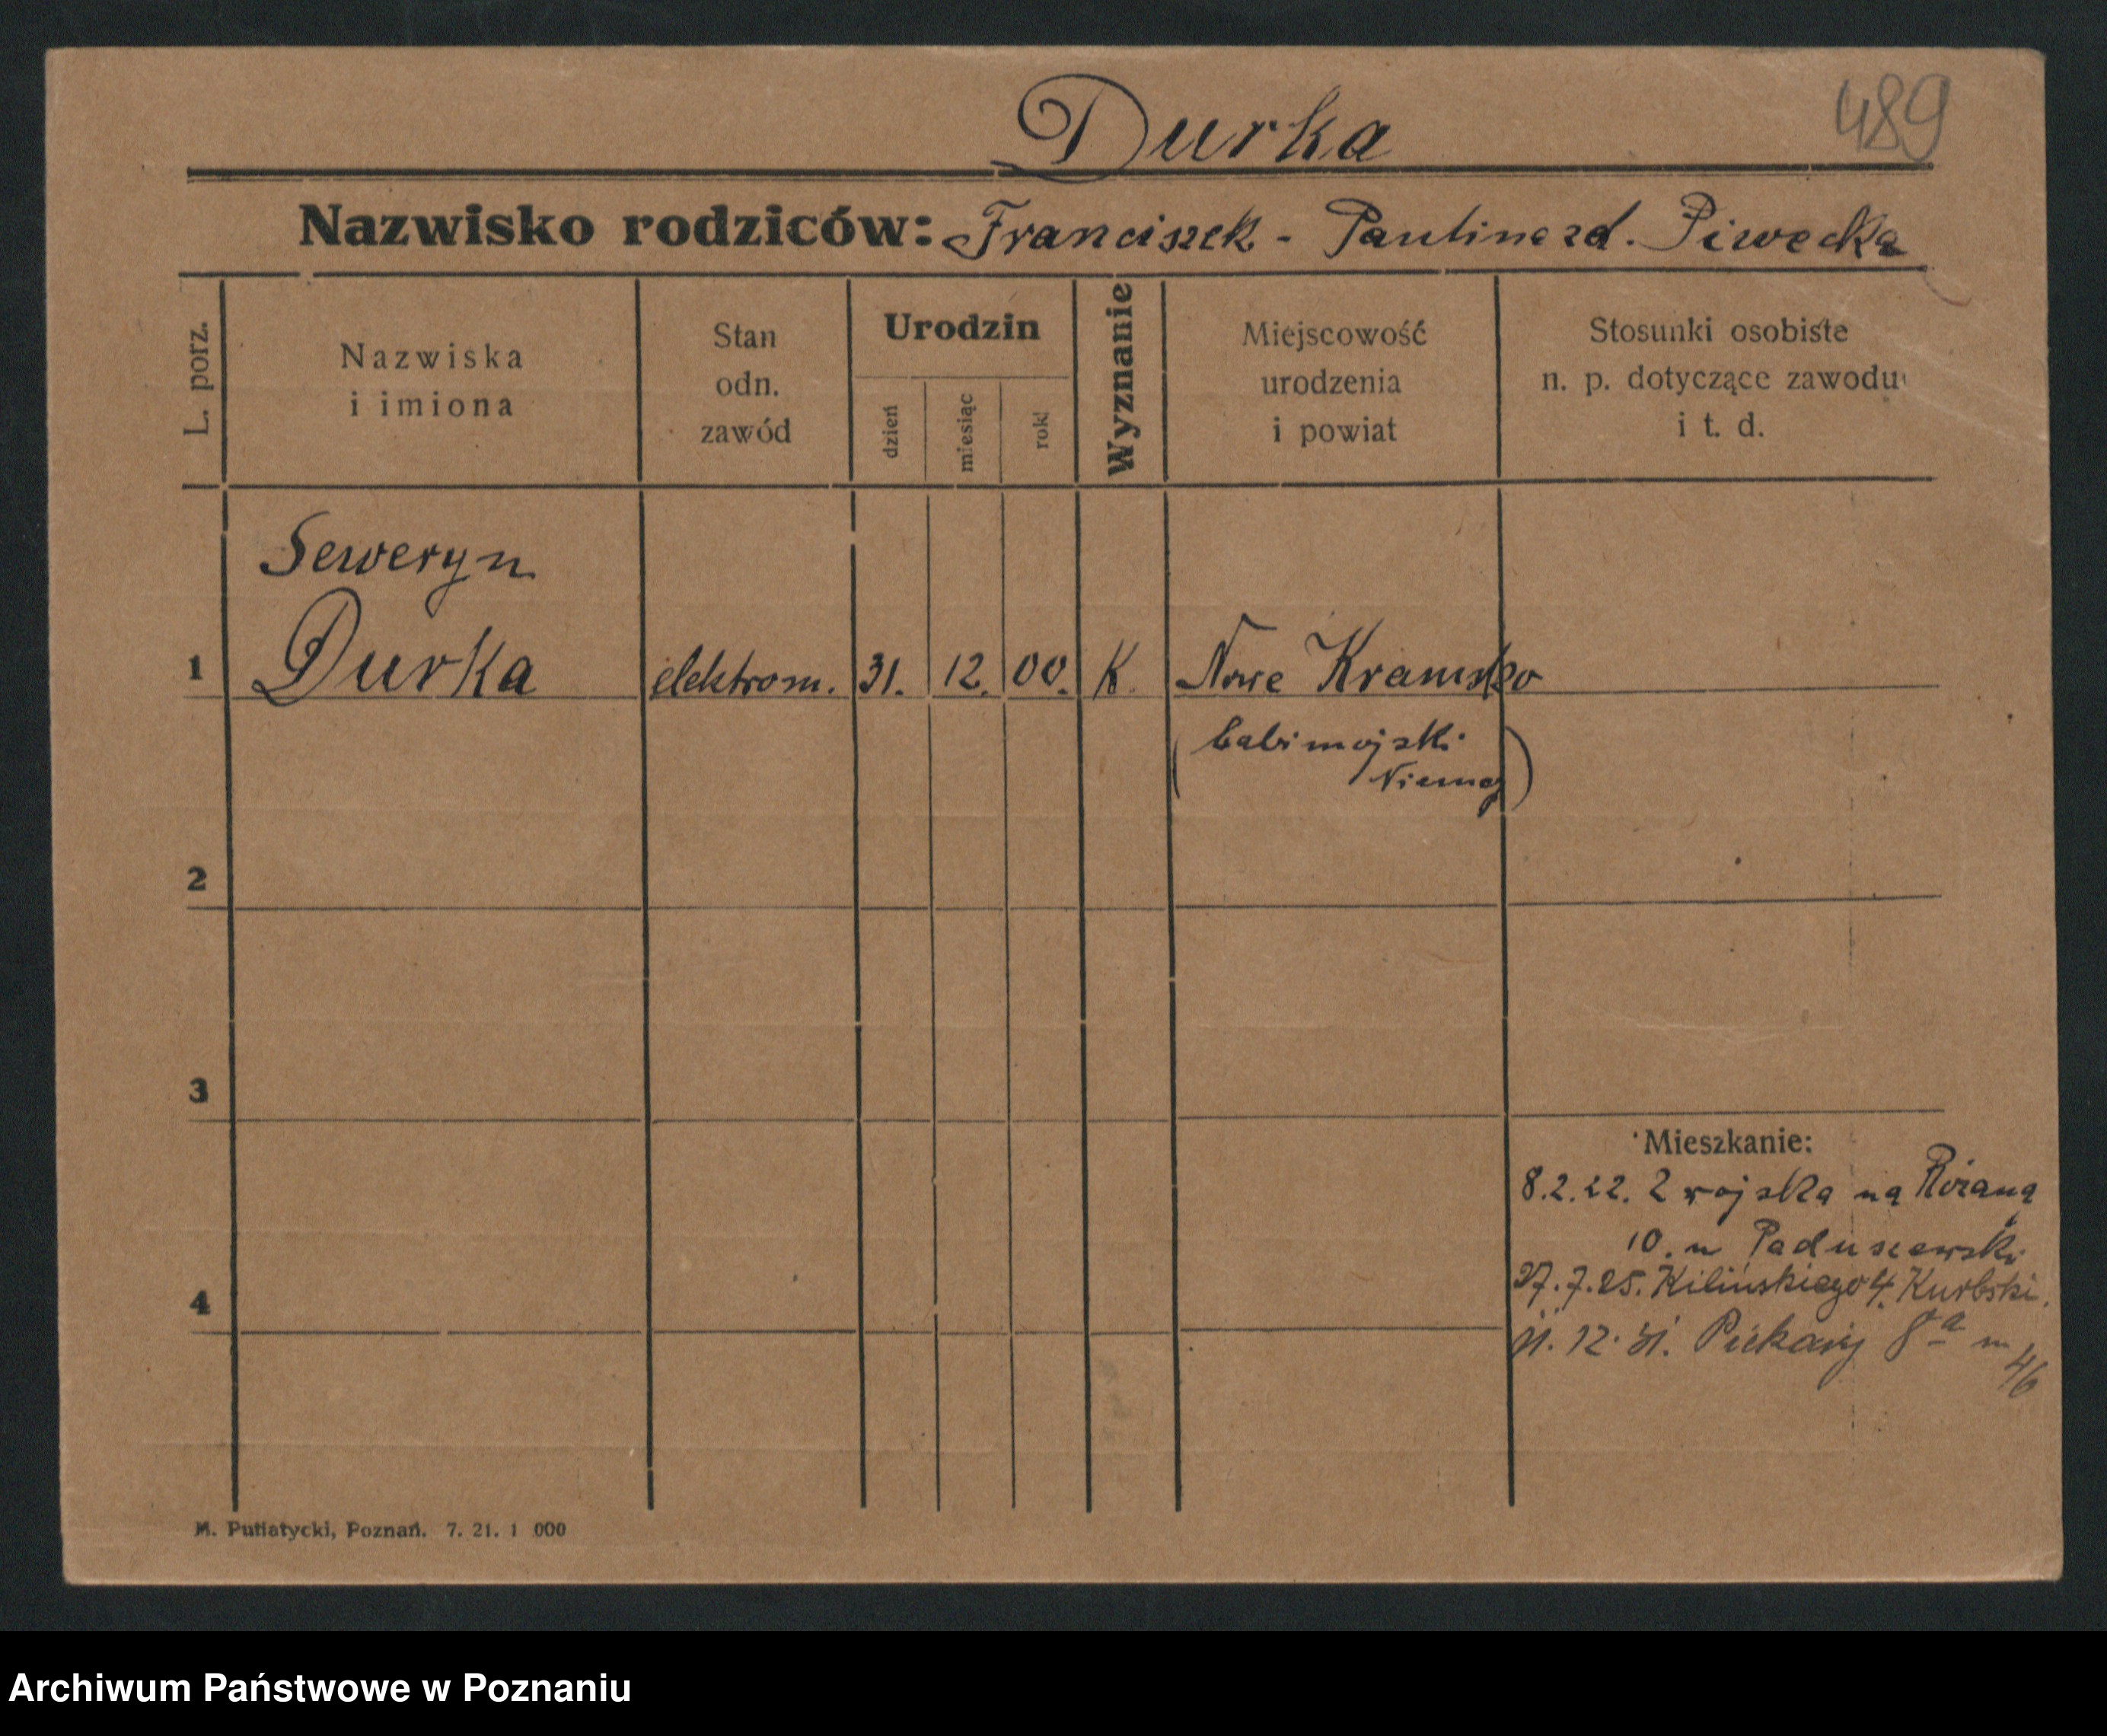 Durka
489
Nazwisko rodziców: Franciszek - Paulina zd. Piwecka
L. porz.
Nazwiska
i imiona
Stan
odn.
zawód
Urodzin
dzień
miesiąc
rok
Wyznanie
Miejscowość
urodzenia
i powiat
Stosunki osobiste
n. p. dotyczące zawodu
i t. d.
Seweryn
1 Durka elektrom. 31. 12. 00. K. Nowe Kramsko
(babimojski
Niemcy)
2
3
Mieszkanie:
8.2.22. Z wojska na Różaną
10. u Paduszewski
27.7.25. Kilińskiego 4. Kurbski.
4
11. 12. 31. Piekary 8a m
46
M. Putiatycki, Poznań. 7. 21. 1 000
Archiwum Państwowe w Poznaniu